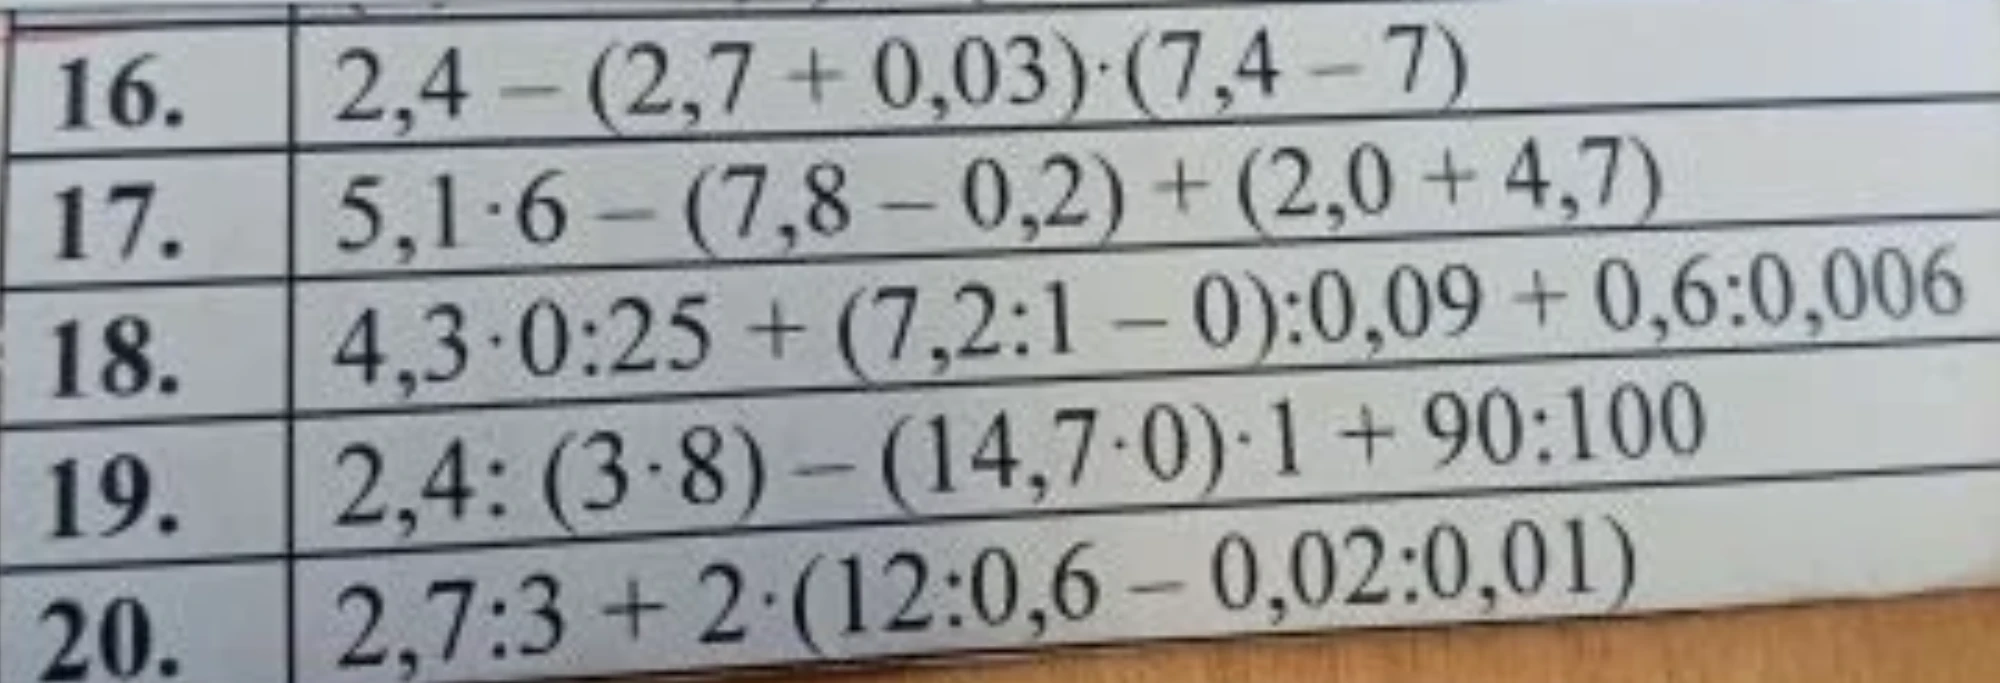 16. 2,4 – (2,7 + 0,03)·(7,4 – 7)
17. 5,1·6 – (7,8 – 0,2) + (2,0 + 4,7)
18. 4,3·0:25 + (7,2:1 – 0):0,09 + 0,6:0,006
19. 2,4: (3·8) – (14,7·0)·1 + 90:100
20. 2,7:3 + 2·(12:0,6 – 0,02:0,01)